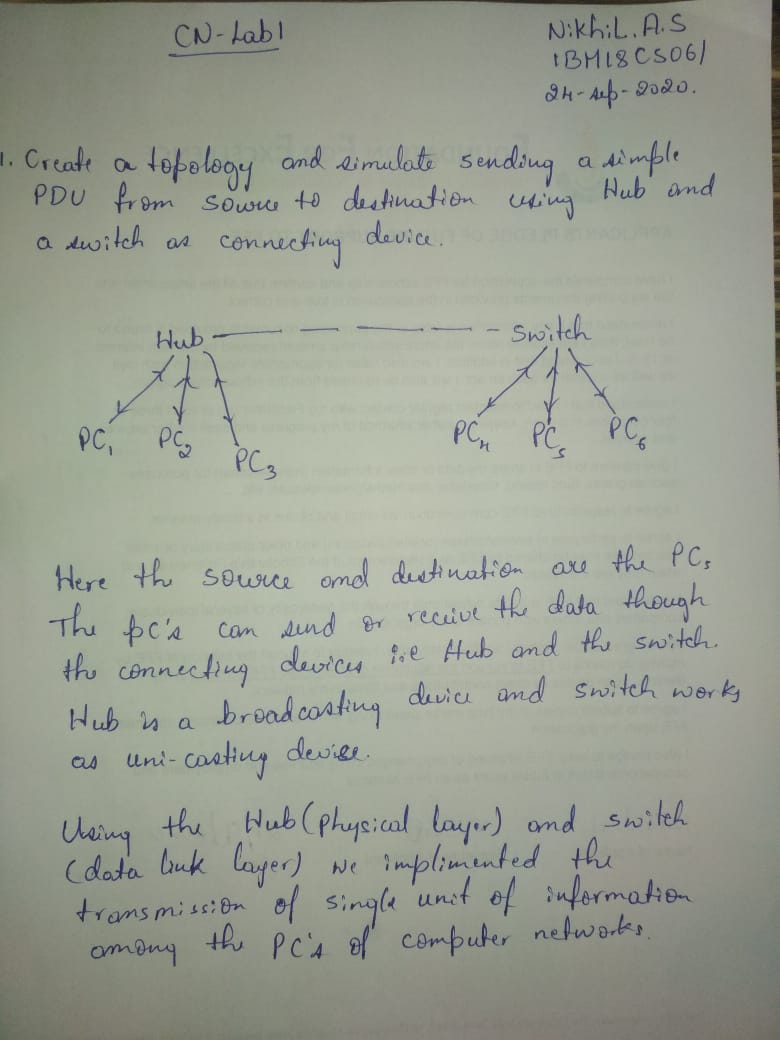 CN-Lab1
Nikhil.A.S
1BM18CS061
24-sep-2020.
1. Create a topology and simulate sending a simple
PDU from source to destination using Hub and
a switch as connecting device.
Hub Switch
PC1 PC2 PC3 PC4 PC5 PC6
Here the source and destination are the PCs
The pc's can send or receive the data though
the connecting devices i.e Hub and the switch.
Hub is a broadcasting device and switch works
as uni-casting device.
Using the Hub (physical layer) and switch
(data link layer) we implimented the
transmission of single unit of information
among the PC's of computer networks.